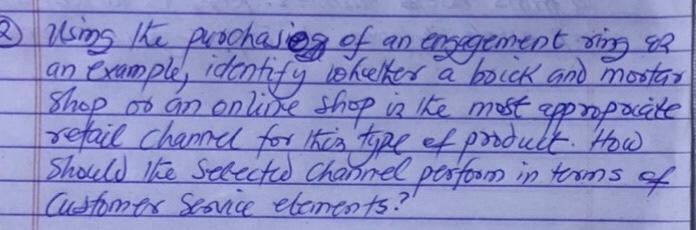 ② Using the purchasing of an engagement ring as
an example, identify whether a brick and mortar
shop or an online shop is the most appropriate
retail channel for this type of product. How
should the selected channel perform in terms of
customer service elements?